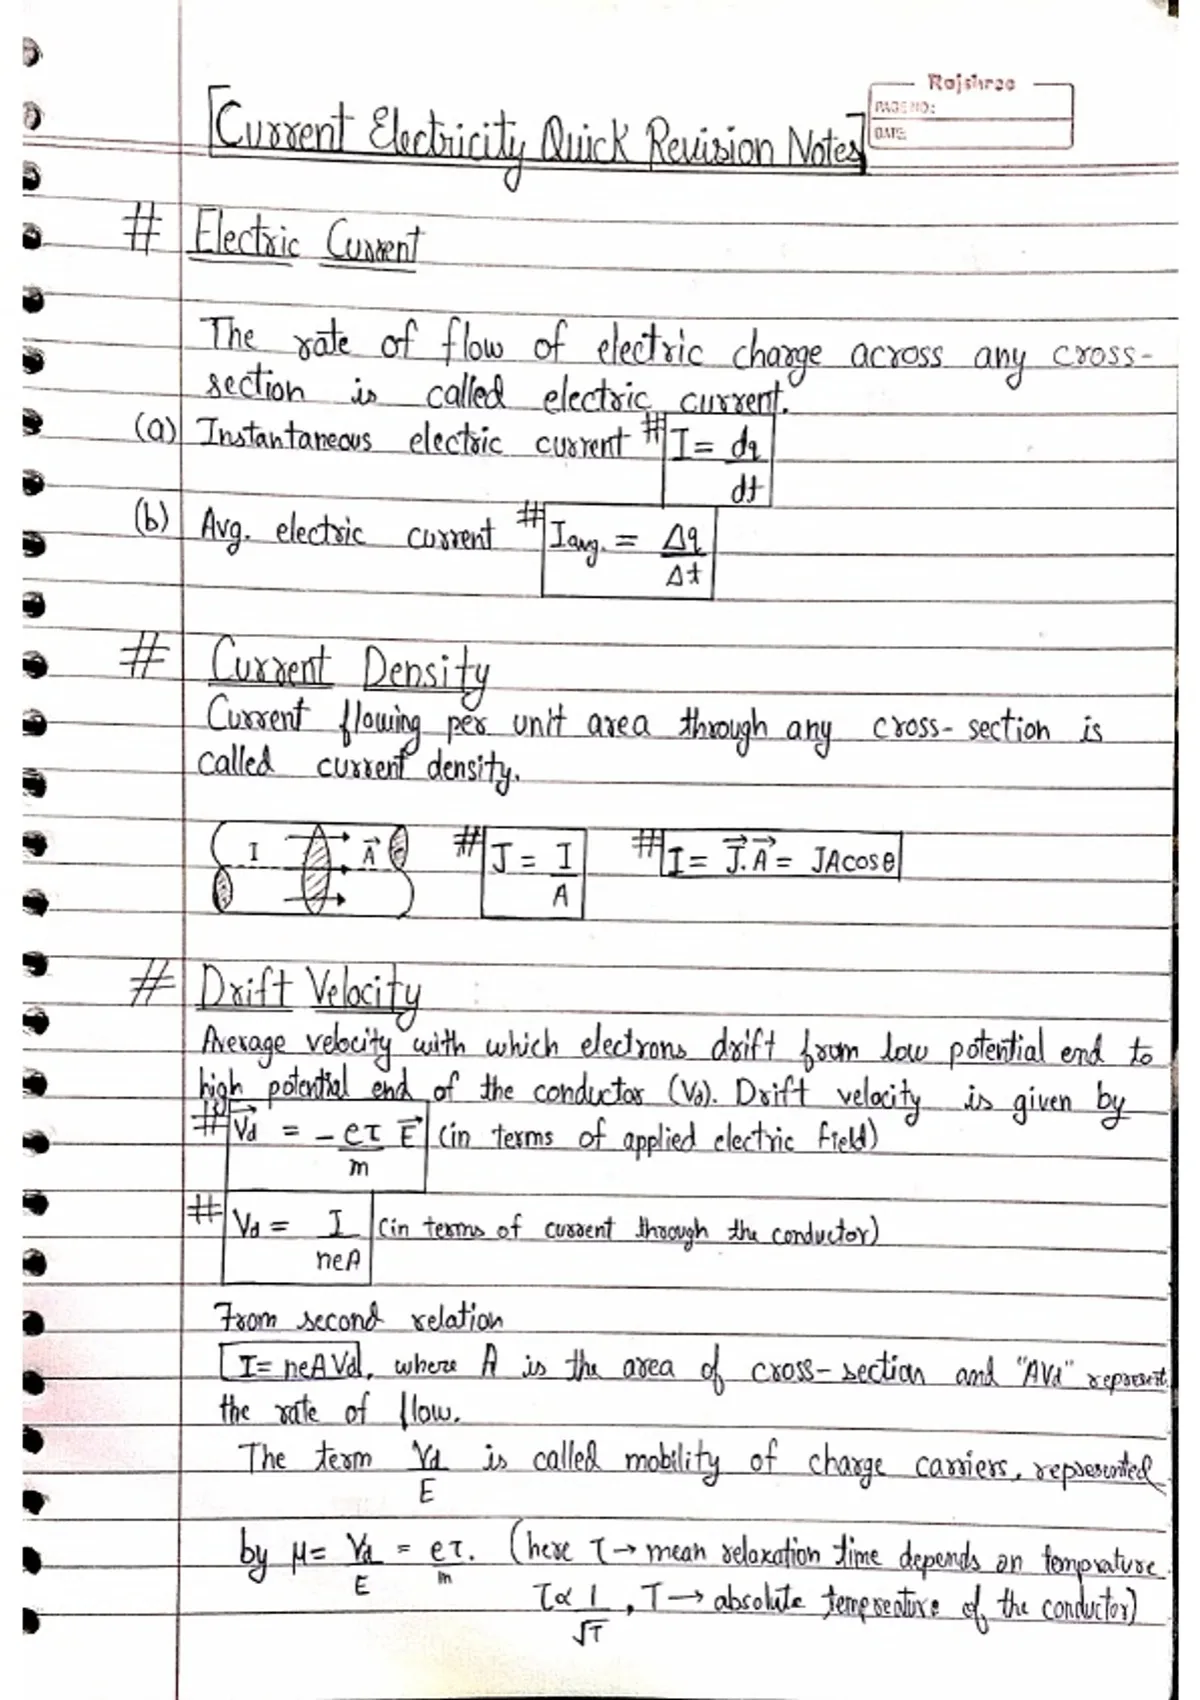 Rajshree
PAGE NO:
DATE:
[Current Electricity Quick Revision Notes]
# Electric Current
The rate of flow of electric charge across any cross-
section is called electric current.
(a) Instantaneous electric current # I = dq/dt
(b) Avg. electric current # Iavg. = Δq/Δt
# Current Density
Current flowing per unit area through any cross-section is
called current density.
I A⃗ # J = I/A # I = J⃗.A⃗ = JAcosθ
# Drift Velocity
Average velocity with which electrons drift from low potential end to
high potential end of the conductor (Vd). Drift velocity is given by
# V⃗d = -eτ/m E⃗ (in terms of applied electric field)
# Vd = I/neA (in terms of current through the conductor)
From second relation
I = neAVd, where A is the area of cross-section and "AVd" represent
the rate of flow.
The term Vd/E is called mobility of charge carriers, represented
by μ = Vd/E = eτ/m. (here τ → mean relaxation time depends on temprature
τ ∝ 1/√T, T → absolute temperature of the conductor)